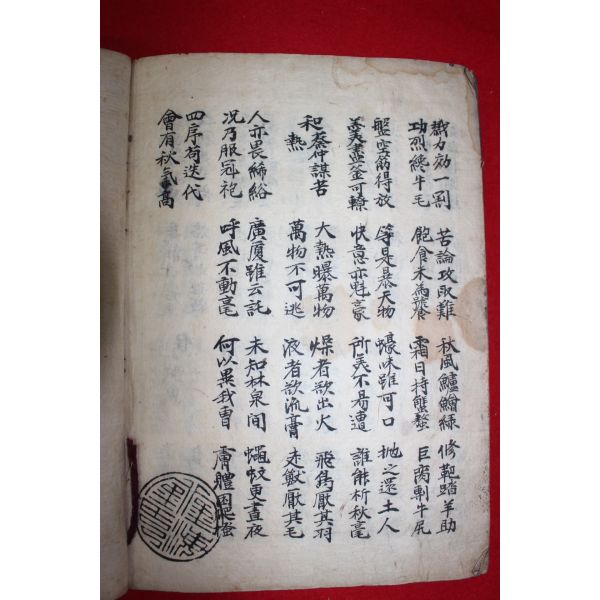 戮力効一割 苦論攻取難 秋風鱸鱠綠 修靶踏羊助
功烈纔牛毛 飽食未為饕 霜日持蟹螯 巨臠剸牛尻
盤空筯得放 等是暴天物 蠔味雖可口 抛之還土人
羹盡釜可轑 快意亦魁豪 所美不易遭 誰能析秋毫
和蔡仲謀苦熱
大熱曝萬物 燥者欲出火 飛厭其羽
萬物不可逃 液者欲流膏 走獸厭其毛
人亦畏絺綌 廣廈雖云託 未知林泉間 蠅蚊更晝夜
况乃服冠袍 呼風不動毫 何以異我曹 膚體困爬搔
四序苟迭代
會有秋氣高